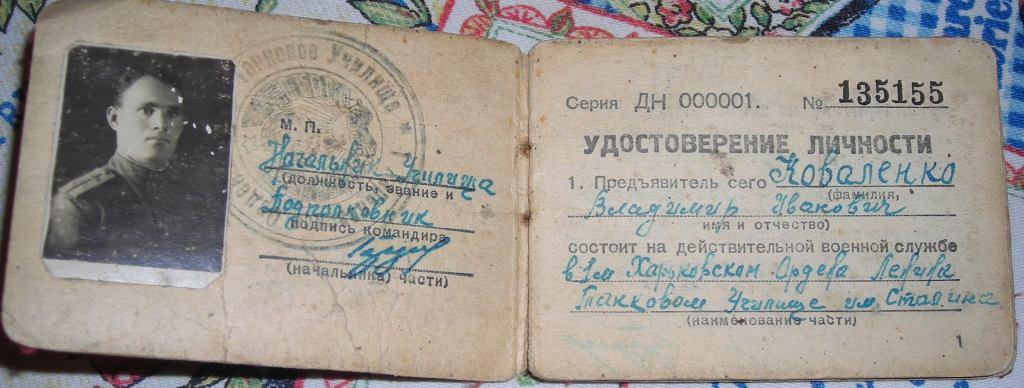 Военное Училище
М. П.
Начальник Училища
(должность, звание и
Подполковник
подпись командира
(начальника) части)
Серия ДН 000001. № 135155
УДОСТОВЕРЕНИЕ ЛИЧНОСТИ
1. Предъявитель сего Коваленко
(фамилия,
Владимир Иванович
имя и отчество)
состоит на действительной военной службе
в 1м Харьковском Ордена Ленина
Танковом Училище им. Сталина
(наименование части)
1